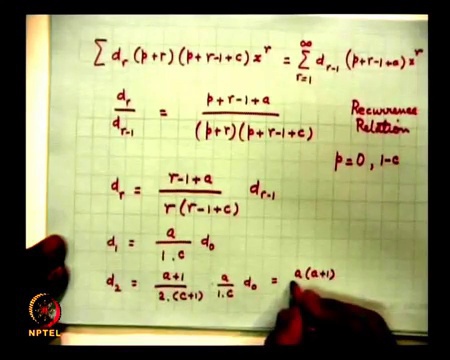 ∑ d_r (p+r)(p+r-1+c) x^r = ∑_{r=1}^{∞} d_{r-1} (p+r-1+a) x^r
d_r / d_{r-1} = (p+r-1+a) / ((p+r)(p+r-1+c))
Recurrence
Relation
p=0, 1-c
d_r = (r-1+a) / (r(r-1+c)) d_{r-1}
d_1 = a / (1.c) d_0
d_2 = (a+1) / (2.(c+1)) · a / (1.c) d_0 = a(a+1)
NPTEL